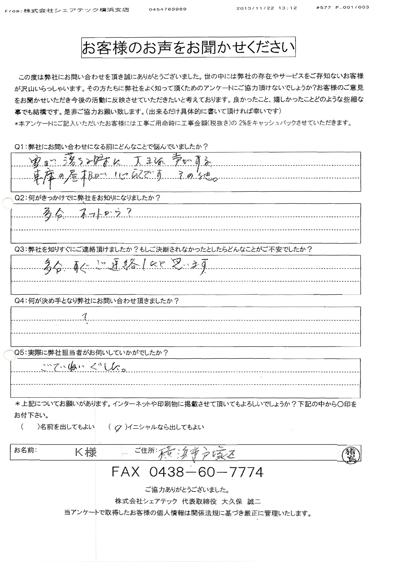 From:株式会社シェアテック横浜支店 0454769969 2013/11/22 13:12 #577 P.001/003
お客様のお声をお聞かせください
この度は弊社にお問い合わせを頂き誠にありがとうございました。世の中には弊社の存在やサービスをご存知ないお客様
が沢山いらっしゃいます。その方たちに弊社をよく知って頂くためのアンケートにご協力頂けないでしょうか?お客様のご意見
をお聞かせいただき今後の活動に反映させていただきたいと考えております。良かったこと、嬉しかったことどのような些細な
事でも結構です。是非ご協力お願い致します。(出来るだけ具体的に書いて頂ければ幸いです)
*本アンケートにご記入いただいたお客様には工事ご用命時に工事金額(税抜き)の2%をキャッシュバックさせていただきます。
Q1:弊社にお問い合わせになる前にどんなことで悩んでいましたか?
車庫の屋根が心配です その他。
Q2:何がきっかけでに弊社をお知りになりましたか?
多分 ネットから?
Q3:弊社を知りすぐにご連絡頂けましたか?もしご決断されなかったとしたらどんなことがご不安でしたか?
多分 すぐ ご連絡したと思います
Q4:何が決め手となり弊社にお問い合わせ頂きましたか?
?
Q5:実際に弊社担当者がお伺いしていかがでしたか?
ごていねいでした。
*上記についてお願いがあります。インターネットや印刷物に掲載させて頂いてもよろしいでしょうか?下記の中から○印を
お付下さい。
( )名前を出してもよい (○)イニシャルなら出してもよい
お名前: K様 ご住所: 横浜市戸塚区
FAX 0438-60-7774
ご協力ありがとうございました。
株式会社シェアテック 代表取締役 大久保 誠二
当アンケートで取得したお客様の個人情報は関係法規に基づき厳正に管理いたします。